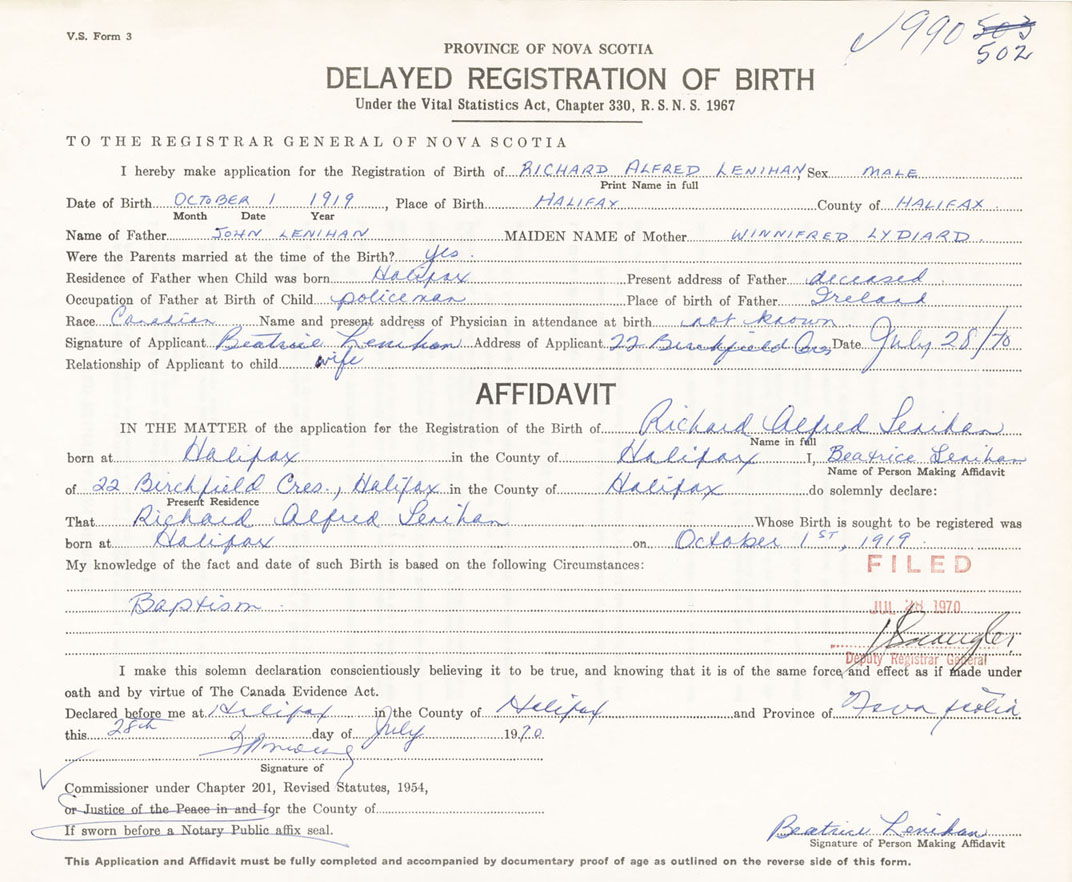 V.S. Form 3
1990 503
502
PROVINCE OF NOVA SCOTIA
DELAYED REGISTRATION OF BIRTH
Under the Vital Statistics Act, Chapter 330, R. S. N. S. 1967
TO THE REGISTRAR GENERAL OF NOVA SCOTIA
I hereby make application for the Registration of Birth of RICHARD ALFRED LENIHAN, Sex MALE
Print Name in full
Date of Birth OCTOBER 1 1919, Place of Birth HALIFAX County of HALIFAX.
Month Date Year
Name of Father JOHN LENIHAN MAIDEN NAME of Mother WINNIFRED LYDIARD.
Were the Parents married at the time of the Birth? yes.
Residence of Father when Child was born Halifax Present address of Father deceased
Occupation of Father at Birth of Child policeman Place of birth of Father Ireland
Race Canadian Name and present address of Physician in attendance at birth not known.
Signature of Applicant Beatrice Lenihan Address of Applicant 22 Birchfield Cres Date July 28/70
Relationship of Applicant to child wife
AFFIDAVIT
IN THE MATTER of the application for the Registration of the Birth of Richard Alfred Lenihan
Name in full
born at Halifax in the County of Halifax I, Beatrice Lenihan
Name of Person Making Affidavit
of 22 Birchfield Cres., Halifax in the County of Halifax do solemnly declare:
Present Residence
That Richard Alfred Lenihan Whose Birth is sought to be registered was
born at Halifax on October 1ST, 1919.
My knowledge of the fact and date of such Birth is based on the following Circumstances:
FILED
Baptism.
JUL 28 1970
Deputy Registrar General
I make this solemn declaration conscientiously believing it to be true, and knowing that it is of the same force and effect as if made under
oath and by virtue of The Canada Evidence Act.
Declared before me at Halifax in the County of Halifax and Province of Nova Scotia
this 28th day of July 1970
Signature of
Commissioner under Chapter 201, Revised Statutes, 1954,
or Justice of the Peace in and for the County of
If sworn before a Notary Public affix seal.
Beatrice Lenihan
Signature of Person Making Affidavit
This Application and Affidavit must be fully completed and accompanied by documentary proof of age as outlined on the reverse side of this form.